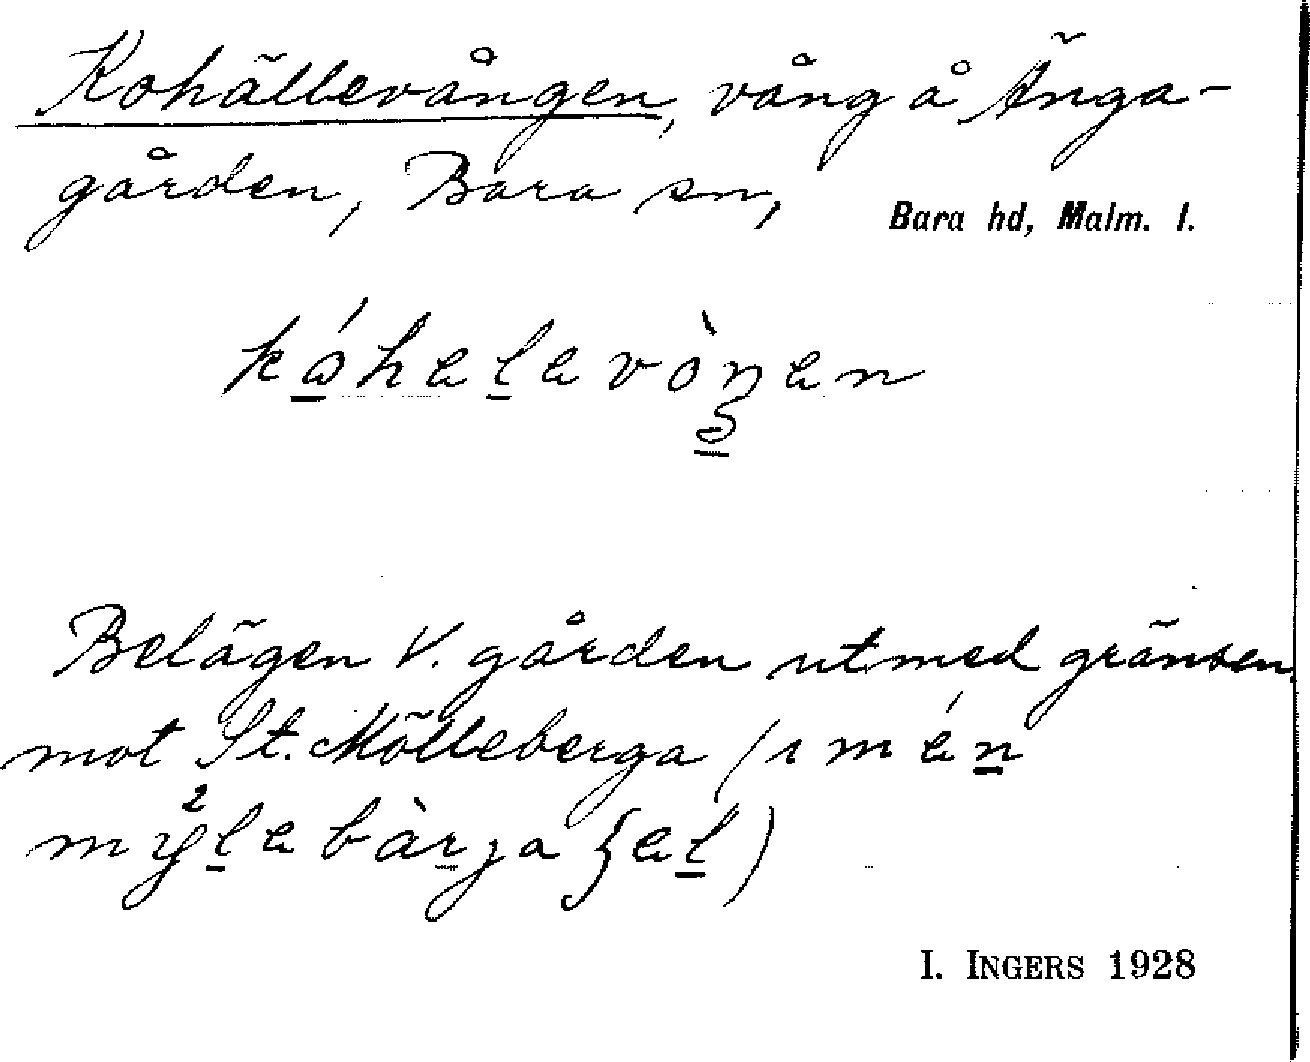 Kohällevången, vång å Änga-
gården, Bara sn,
Bara hd, Malm. l.
kóhelevòŋen
Belägen V. gården utmed gränsen
mot St. Mölleberga (ımén
mylebàrja ʃel)
I. INGERS 1928